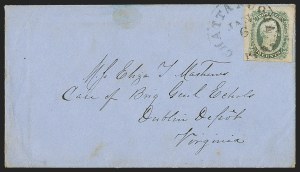 CHATTA
Mrs Eliza T Mathews
Care of Brig Genl Echols
Dublin Depôt
Virginia